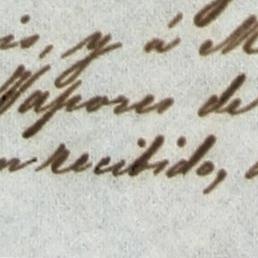 is, y á M
Vapores de
n recibido,